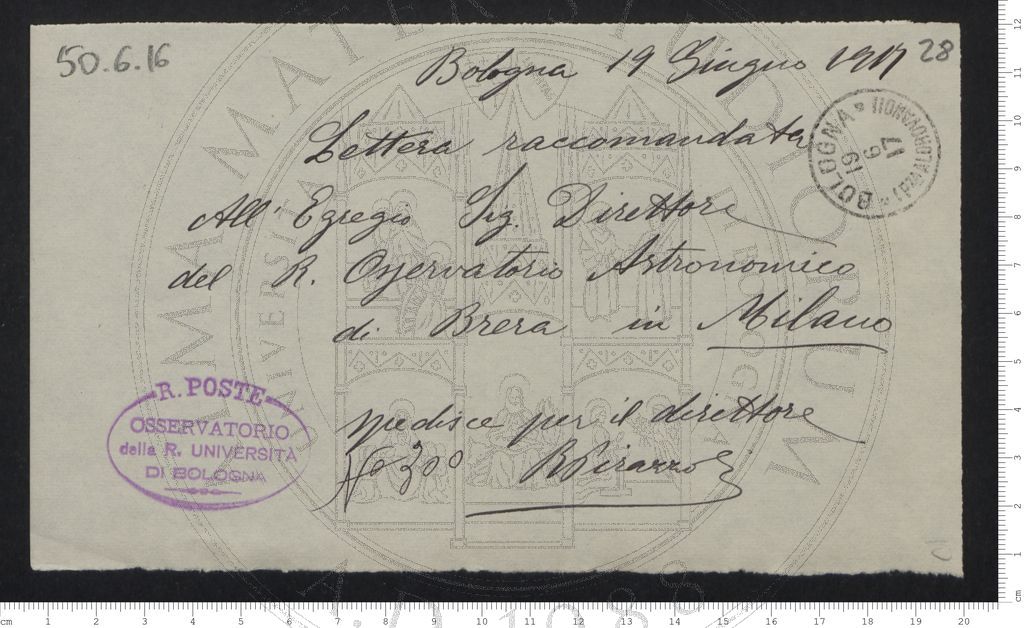 50.6.16
28
Bologna 19 Giugno 1917
Lettera raccomandata
All' Egregio Sig. Direttore
del R. Osservatorio Astronomico
di Brera in Milano
spedisce per il direttore
R. POSTE
OSSERVATORIO
della R. UNIVERSITÀ
DI BOLOGNA
BOLOGNA
17
6
19
ALMA MATER STUDIORUM
A.D. 1088
cm 1 2 3 4 5 6 7 8 9 10 11 12 13 14 15 16 17 18 19 20
12
11
10
9
8
7
6
5
4
3
2
1
cm